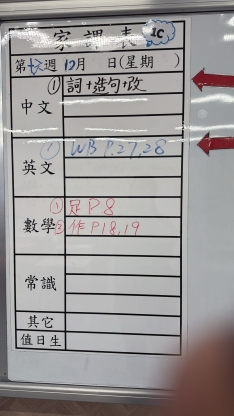 家課表 1C
第十六週 12月 日(星期 )
中文 ① 詞+造句+改
英文 ① WB P.27,28
數學 ① 足 P8
② 作 P18,19
常識
其它
值日生